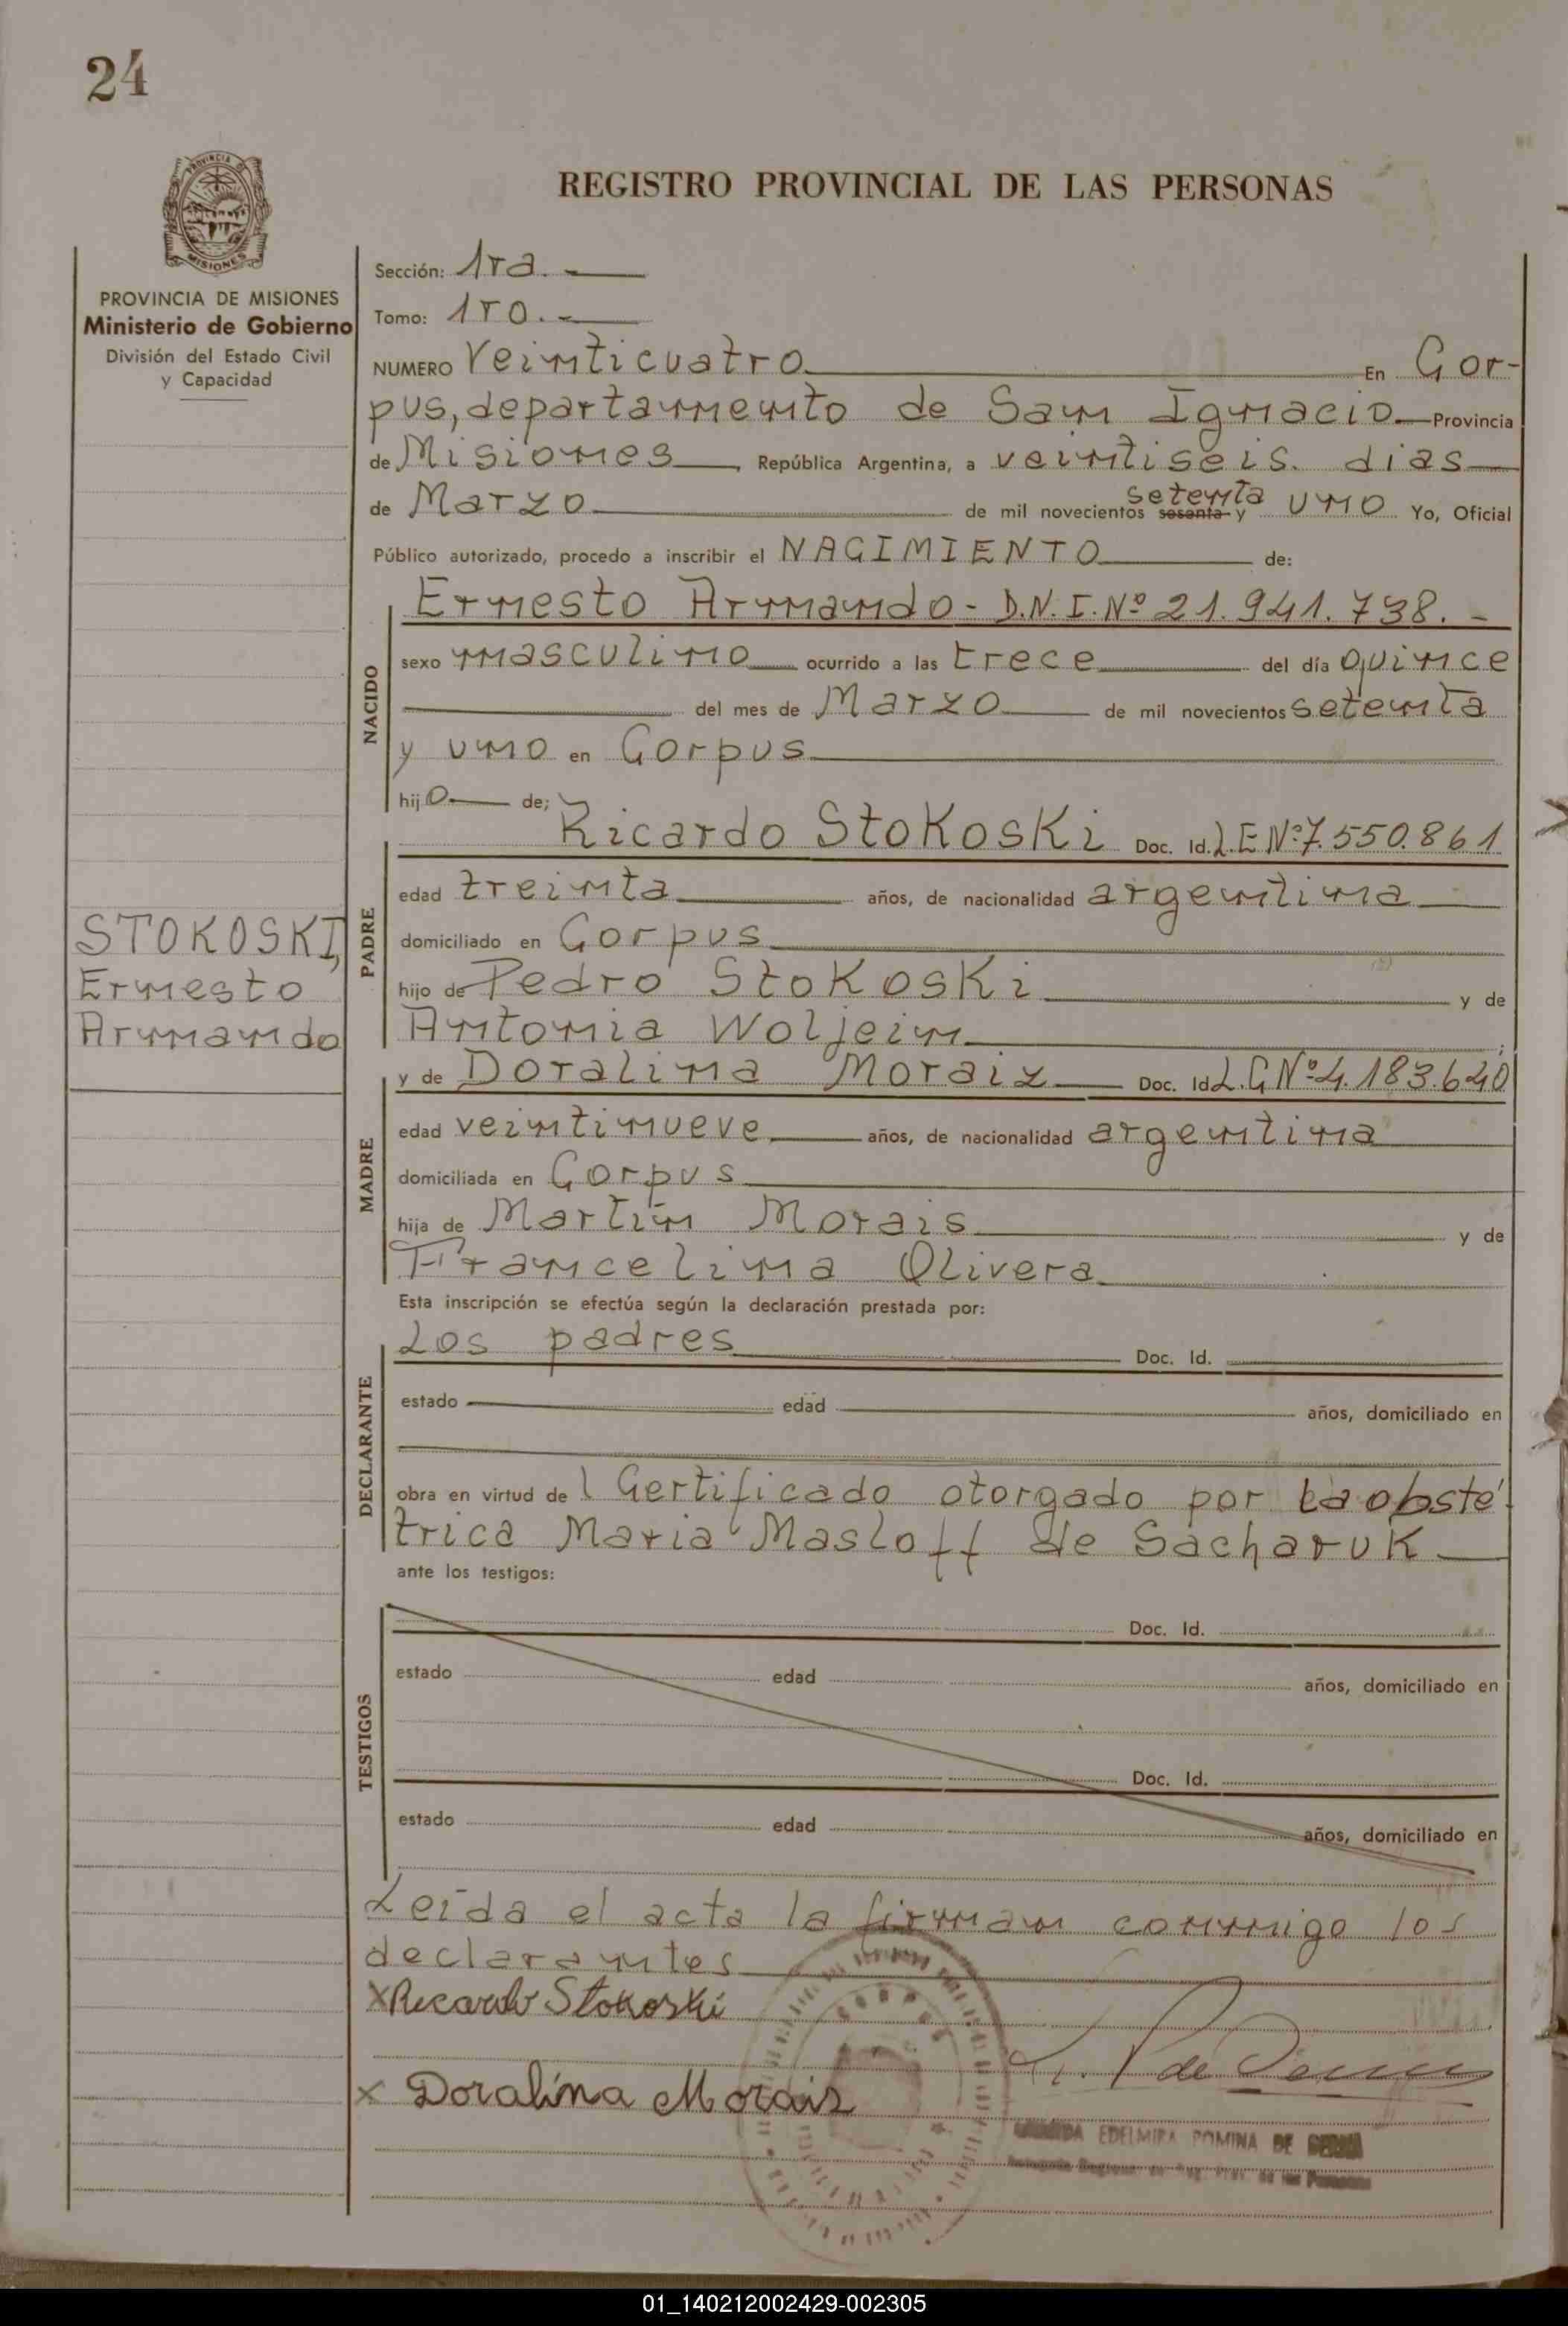 24
PROVINCIA DE
MISIONES
REGISTRO PROVINCIAL DE LAS PERSONAS
PROVINCIA DE MISIONES
Ministerio de Gobierno
División del Estado Civil
y Capacidad
Sección: 1ra.
Tomo: 1ro.
NUMERO Veinticuatro En Cor-
pus, departamento de San Ignacio Provincia
de Misiones, República Argentina, a veintiseis dias
de Marzo de mil novecientos sesenta setenta y uno Yo, Oficial
Público autorizado, procedo a inscribir el NACIMIENTO de:
NACIDO
Ernesto Armando - D.N.I. Nº 21.941.738. -
sexo masculino ocurrido a las trece del día quince
del mes de Marzo de mil novecientos setenta
y uno en Corpus
hijo de;
PADRE
Ricardo Stokoski Doc. Id. L.E Nº 7.550.861
edad treinta años, de nacionalidad argentina
domiciliado en Corpus
hijo de Pedro Stokoski y de
Antonia Woljein;
STOKOSKI,
Ernesto
Armando
MADRE
y de Doralina Moraiz Doc. Id L.C Nº 4.183.640
edad veintinueve años, de nacionalidad argentina
domiciliada en Corpus
hija de Martín Morais y de
Francelina Olivera
Esta inscripción se efectúa según la declaración prestada por:
DECLARANTE
Los padres Doc. Id.
estado edad años, domiciliado en
obra en virtud de l Certificado otorgado por la obsté
trica Maria Masloff de Sacharuk
ante los testigos:
TESTIGOS
Doc. Id.
estado edad años, domiciliado en
Doc. Id.
estado edad años, domiciliado en
Leída el acta la firman conmigo los
declarantes
x Ricardo Stokoski
x Doralina Morais
EDELMIRA ROMINA DE
01_140212002429-002305